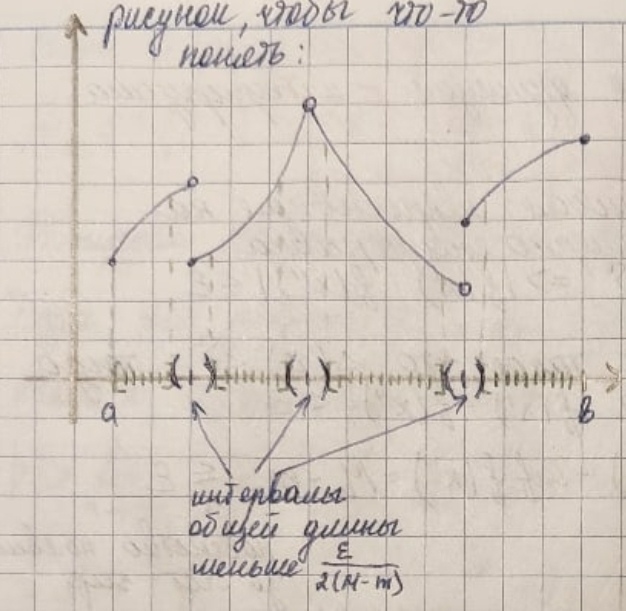 рисунок, чтобы что-то
понять:
a
в
интервалы
общей длины
меньше ε/2(M-m)